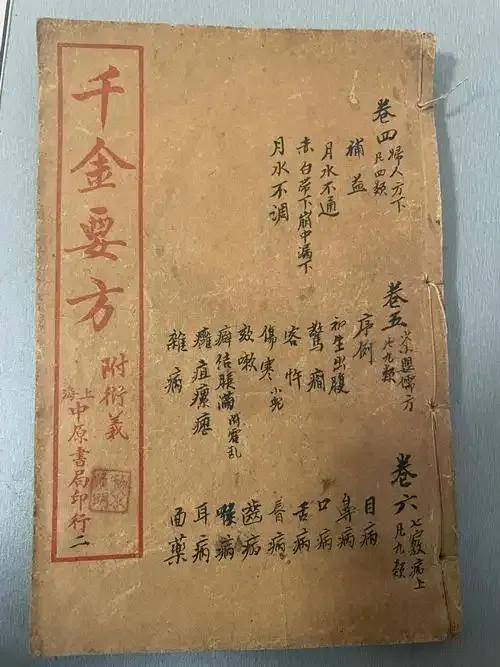 卷四 婦人方下
凡四類
補益
月水不通
赤白帶下崩中漏下
月水不调
卷五 少小嬰孺方
凡九類
序例
初生出腹
驚癇
客忤
傷寒 小兒
咳嗽
癖结脹滿 附霍乱
癰疽瘰癧
雜病
卷六 七竅病上
凡九類
目病
鼻病
口病
舌病
唇病
齒病
喉病
耳病
面藥
千金要方
附衍義
上海中原書局印行
二